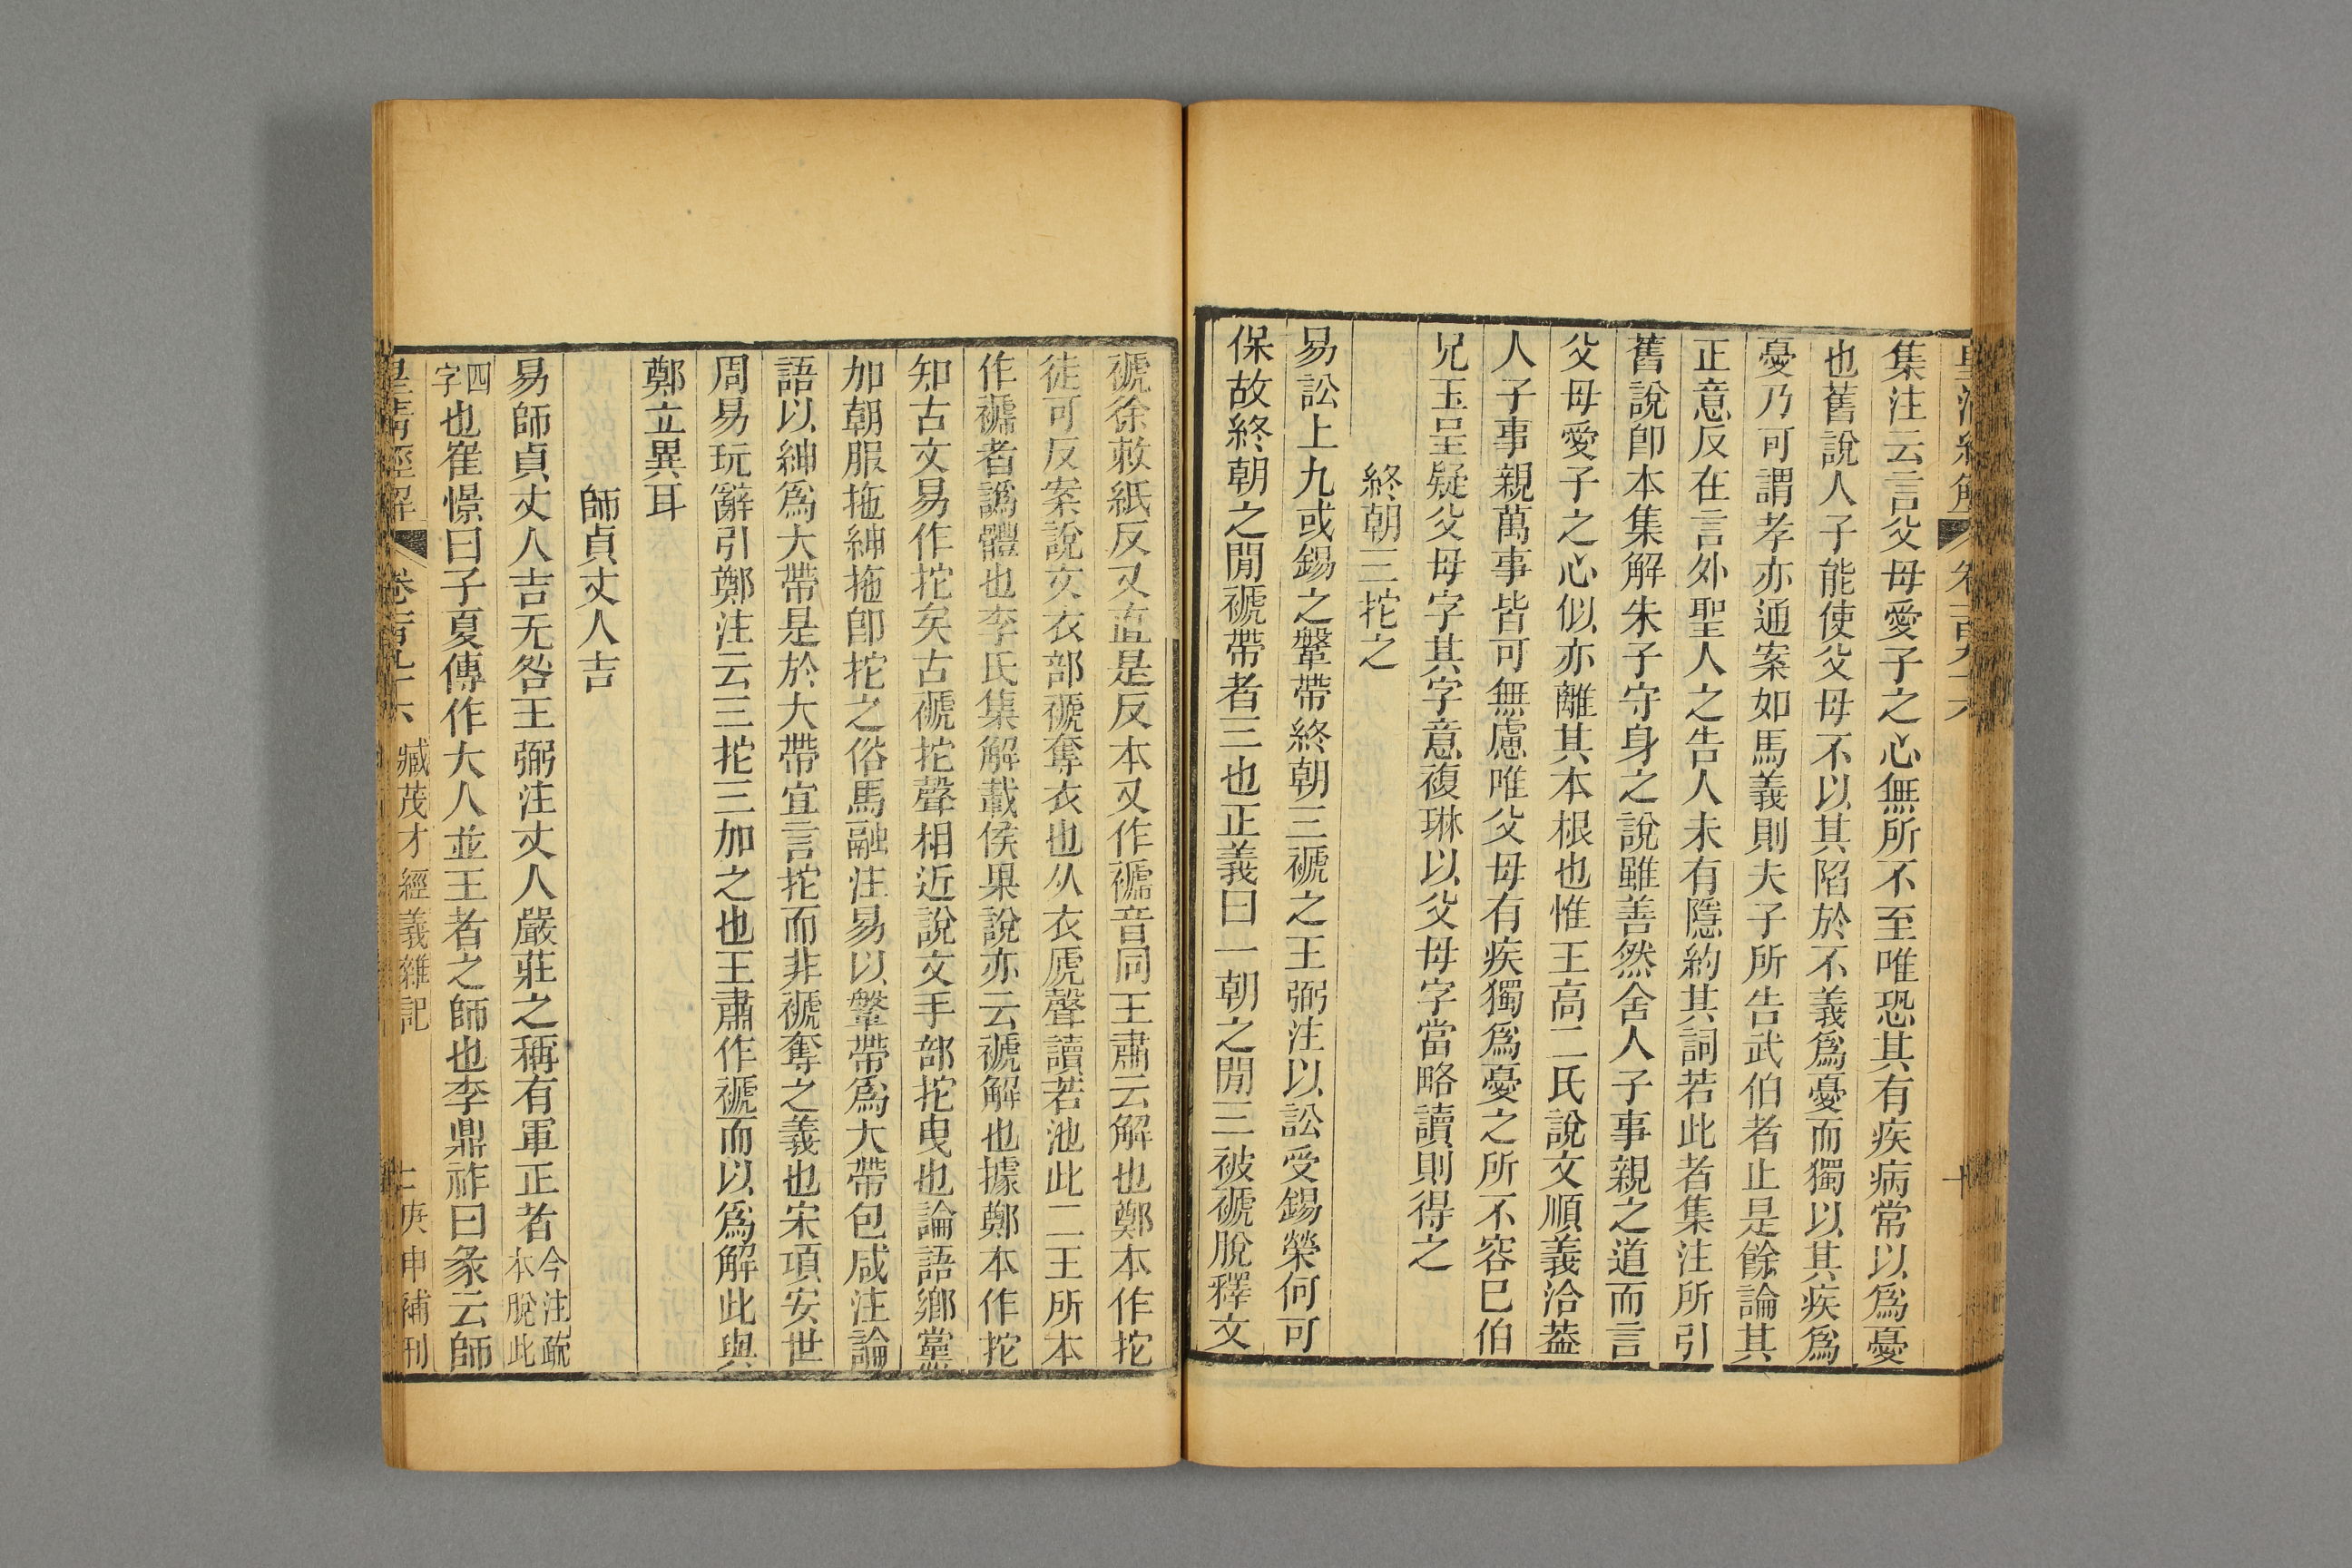 集注云言父母愛子之心無所不至唯恐其有疾病常以爲憂
也舊說人子能使父母不以其陷於不義爲憂而獨以其疾爲
憂乃可謂孝亦通案如馬義則夫子所告武伯者止是餘論其
正意反在言外聖人之告人未有隱約其詞若此者集注所引
舊說卽本集解朱子守身之說雖善然舍人子事親之道而言
父母愛子之心似亦離其本根也惟王高二氏說文順義洽葢
人子事親萬事皆可無慮唯父母有疾獨爲憂之所不容已伯
兄玉呈疑父母字其字意複琳以父母字當略讀則得之
終朝三拕之
易訟上九或錫之鞶帶終朝三褫之王弼注以訟受錫榮何可
保故終朝之閒褫帶者三也正義曰一朝之閒三被褫脫釋文
褫徐敕紙反又直是反本又作褫音同王肅云解也鄭本作拕
徒可反案說文衣部褫奪衣也从衣虒聲讀若池此二王所本
作褫者譌體也李氏集解載侯果說亦云褫解也據鄭本作拕
知古文易作拕矣古褫拕聲相近說文手部拕曳也論語鄉黨
加朝服拖紳拖卽拕之俗馬融注易以鞶帶爲大帶包咸注論
語以紳爲大帶是於大帶宜言拕而非褫奪之義也宋項安世
周易玩辭引鄭注云三拕三加之也王肅作褫而以爲解此與
鄭立異耳
師貞丈人吉
易師貞丈人吉无咎王弼注丈人嚴莊之稱有軍正者今注疏本脫此
四字也崔憬曰子夏傳作大人並王者之師也李鼎祚曰彖云師
皇清經解 卷百九十六 臧茂才經義雜記 庚申補刊